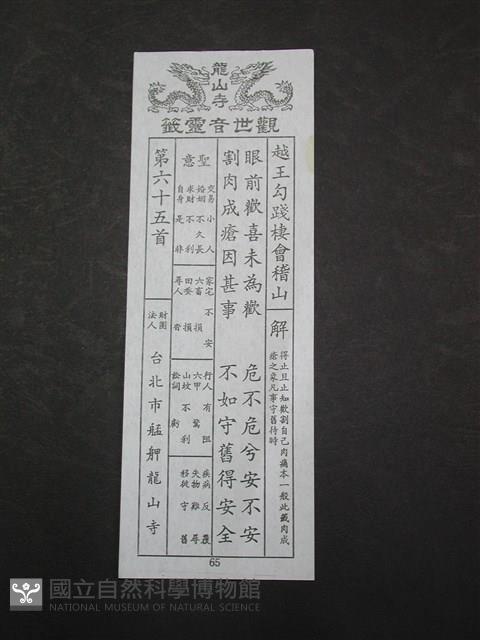 龍山寺
觀世音靈籤
越王勾踐棲會稽山
解
得止且止知歎割自己肉痛本一般此籤肉成
瘡之象凡事守舊待時
眼前歡喜未為歡 危不危兮安不安
割肉成瘡因甚事 不如守舊得安全
聖意
交易 小人
婚姻 不久長
求財 不利
自身 是非
家宅 不安
六畜 損
田蚕 損
尋人 杳
行人 有阻
六甲 驚
山坟 不利
訟詞 虧
疾病 反覆
失物 難尋
移徙 守舊
第六十五首
財團
法人
台北市艋舺龍山寺
65
國立自然科學博物館
NATIONAL MUSEUM OF NATURAL SCIENCE